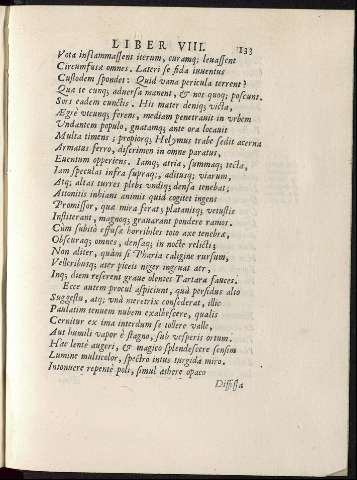 LIBER VIII. 133
Vota inflammassent iterum, curamq; levassent
Circumfusæ omnes. Lateri se fida iuventus
Custodem spondet: Quid vana pericula terrent?
Qua te cunq; adversa manent, & nos quoq; poscunt.
Sors eadem cunctis. His mater deniq; victa,
Ægre vicunq; ferens, mediam penetravit in vrbem
Vndantem populo, gnatamq; ante ora locavit
Multa timens; propiorq; Helymus trabe sedit acerna
Armatus ferro, discrimen in omne paratus,
Euentum opperiens. Iamq; atria, summaq; tecta,
Iam speculas infra supraq;, aditusq; viarum,
Atq; altas turres plebs vndiq; densa tenebat;
Attonitis inhians animis quid cogitet ingens
Promissor, qua mira ferat; platanisq; vetustis
Institerant, magnoq; gravarant pondere ramos.
Cùm subitò effusæ horribiles toto axe tenebræ,
Obscuraq; omnes, densaq; in nocte relicti;
Non aliter, quàm si Pharia caligine rursum,
Velleribusq; ater piceis niger ingruat aër,
Inq; diem referent graue olentes Tartara fauces.
Ecce autem procul aspiciunt, quà perfidus alto
Suggestu, atq; vnà meretrix consederat, illic
Paulatim tenuem nubem exalbescere, qualis
Cernitur ex ima interdum se tollere valle,
Aut humili vapor è stagno, sub vesperis ortum.
Hac lentè augeri, & magico splendescere sensim
Lumine multicolor, spectro intus turgida miro.
Intonuere repentè poli, simul æthere opaco
Diffissa